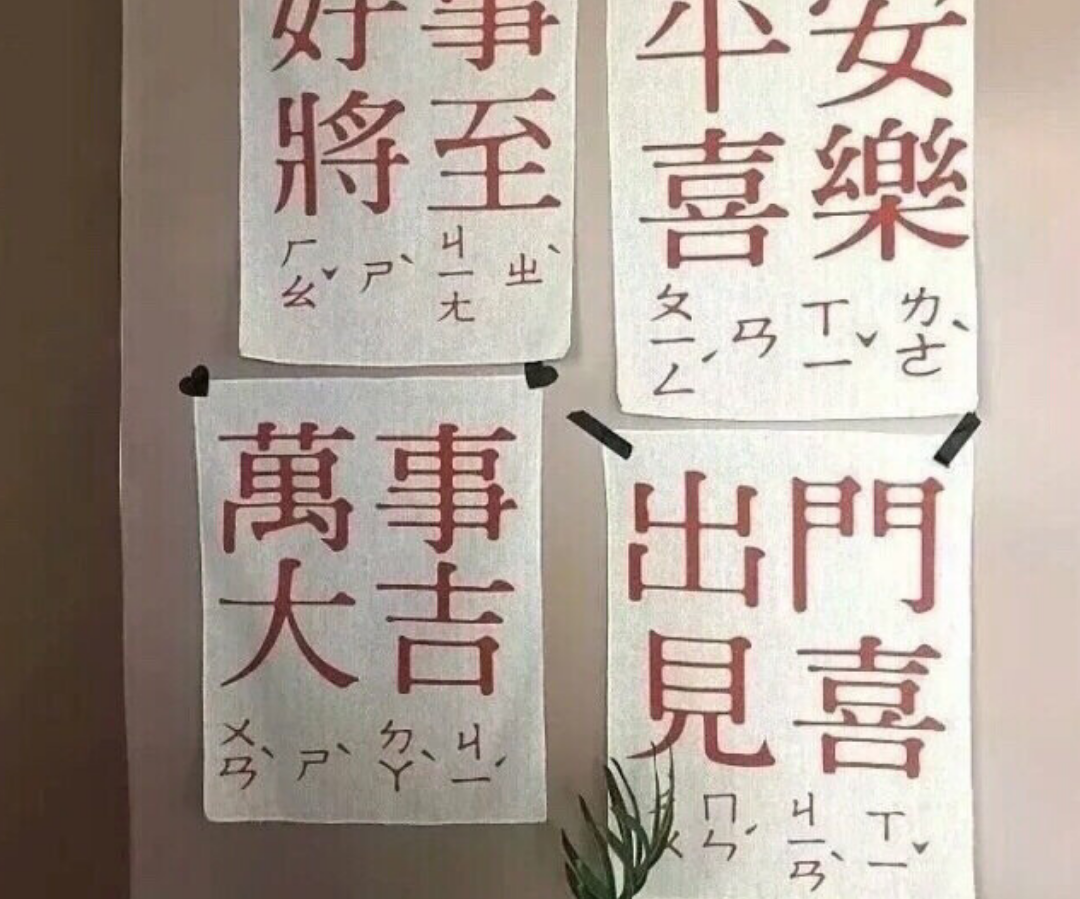 好事
將至
ㄏㄠˇ ㄕˋ ㄐㄧㄤ ㄓˋ
平安
喜樂
ㄆㄧㄥˊ ㄢ ㄒㄧˇ ㄌㄜˋ
萬事
大吉
ㄨㄢˋ ㄕˋ ㄉㄚˋ ㄐㄧˊ
出門
見喜
ㄇㄣˊ ㄐㄧㄢˋ ㄒㄧˇ